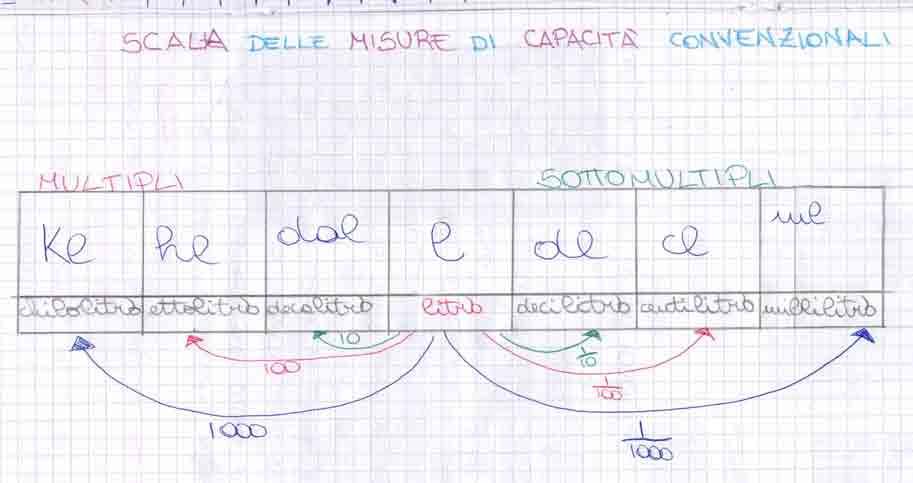 SCALA DELLE MISURE DI CAPACITÀ CONVENZIONALI
MULTIPLI SOTTOMULTIPLI
Kl hl dal l dl cl ml
chilolitro ettolitro decalitro litro decilitro centilitro millilitro
10 1/10
100 1/100
1000 1/1000